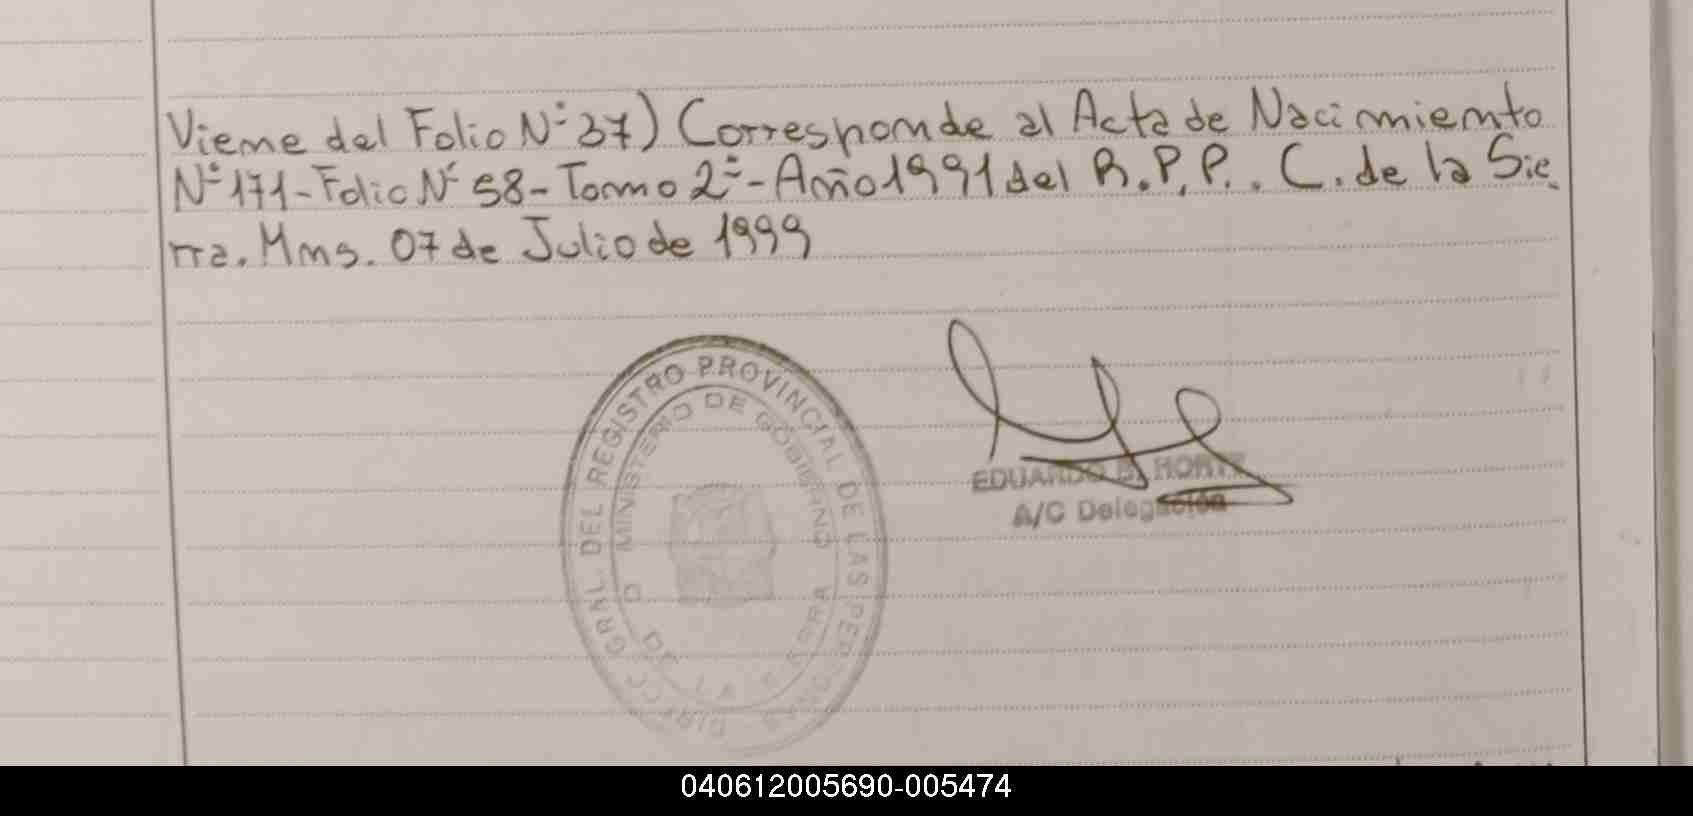 Viene del Folio Nº 37) Corresponde al Acta de Nacimiento
Nº 171-Folio Nº 58-Tomo 2º-Año 1991 del R.P.P. C. de la Sie
rra. Mns. 07 de Julio de 1999
GRAL. DEL REGISTRO PROVINCIAL DE LAS PERSONAS
MINISTERIO DE GOBIERNO
EDUARDO
A/C Delegación
040612005690-005474